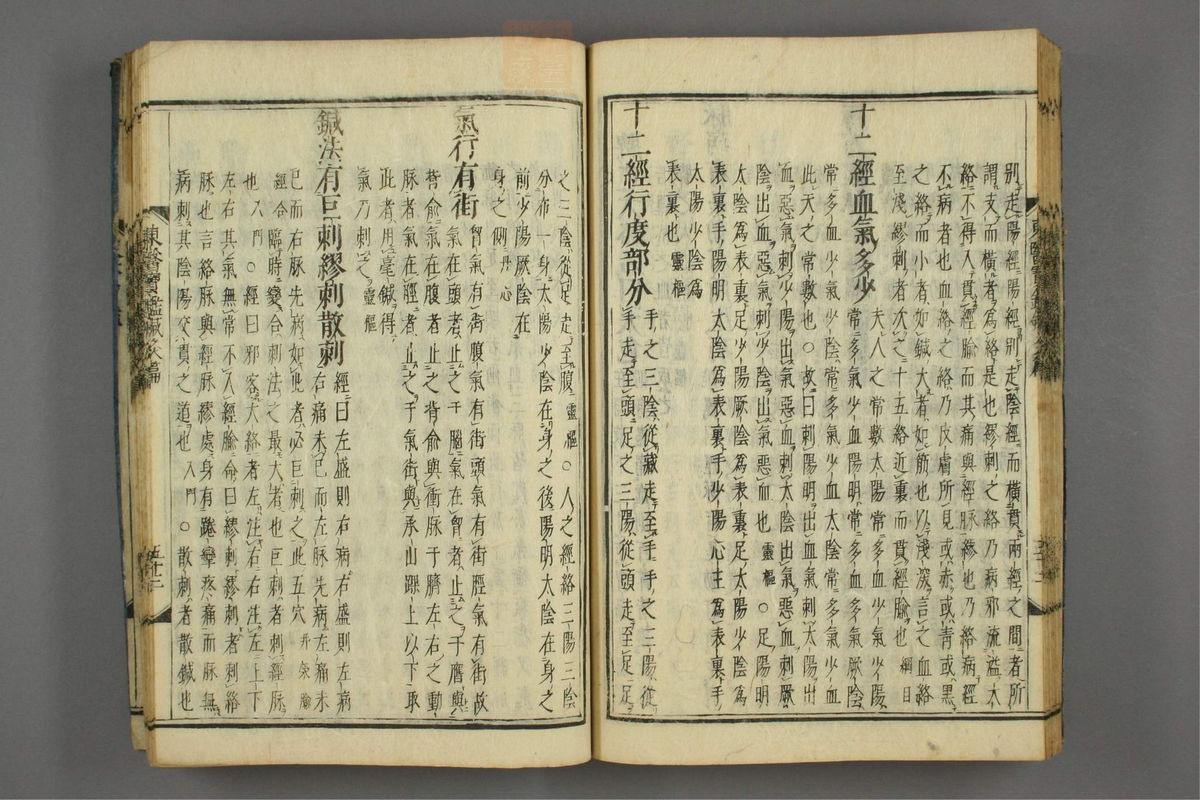 別走陽經陽經別走陰經而橫貫兩經之間者所
謂支而橫者爲絡是也繆刺之絡乃病邪流溢大
絡不得入貫經腧而其痛與經脉繆也乃絡病經
不病者也血絡之絡乃皮膚所見或赤或青或黑
之絡而小者如鍼大者如筯也以淺深言之血絡
至淺繆刺者次之十五絡近裏而貫經腧也 綱目
十二經血氣多少 夫人之常數太陽常多血少氣少陽
常多血少氣常多氣少血陽明常多血多氣厥陰
常多血少氣少陰常多氣少血太陰常多氣少血
此天之常數也○故曰刺陽明出血氣刺太陽出
血惡氣刺少陽出氣惡血刺太陰出氣惡血刺厥
陰出血惡氣刺少陰出氣惡血也 靈樞 ○足陽明
太陰爲表裏足少陽厥陰爲表裏足太陽少陰爲
表裏手陽明太陰爲表裏手少陽心主爲表裏手
太陽少陰爲
表裏也 靈樞
十二經行度部分 手之三陰從藏走至手手之三陽從
手走至頭足之三陽從頭走至足足
之三陰從足走至腹 靈樞 ○人之經絡三陽三陰
分布一身太陽少陰在身之後陽明太陰在身之
前少陽厥陰在
身之側 丹心
氣行有街 胷氣有街腹氣有街頭氣有街脛氣有街故
氣在頭者止之于腦氣在胷者止之于膺與
背俞氣在腹者止之背俞與衝脉于臍左右之動
脉者氣在脛者止之于氣街與承山踝上以下取
此者用毫鍼得
氣乃刺之 靈樞
鍼法有巨刺繆刺散刺 經曰左盛則右病右盛則左病
右痛未已而左脉先病左痛未
已而右脉先病如此者必巨刺之此五穴
經合臨時變合刺法之最大者也巨刺者刺經脉
也 入門 ○經曰邪客大絡者左注右右注左上下
左右其氣無常不入經腧命曰繆刺繆刺者刺絡
脉也言絡脉與經脉繆處身有踡攣疼痛而脉無
病刺其陰陽交貫之道也 入門 ○散刺者散鍼也
東醫寶鑑鍼灸篇
五十二